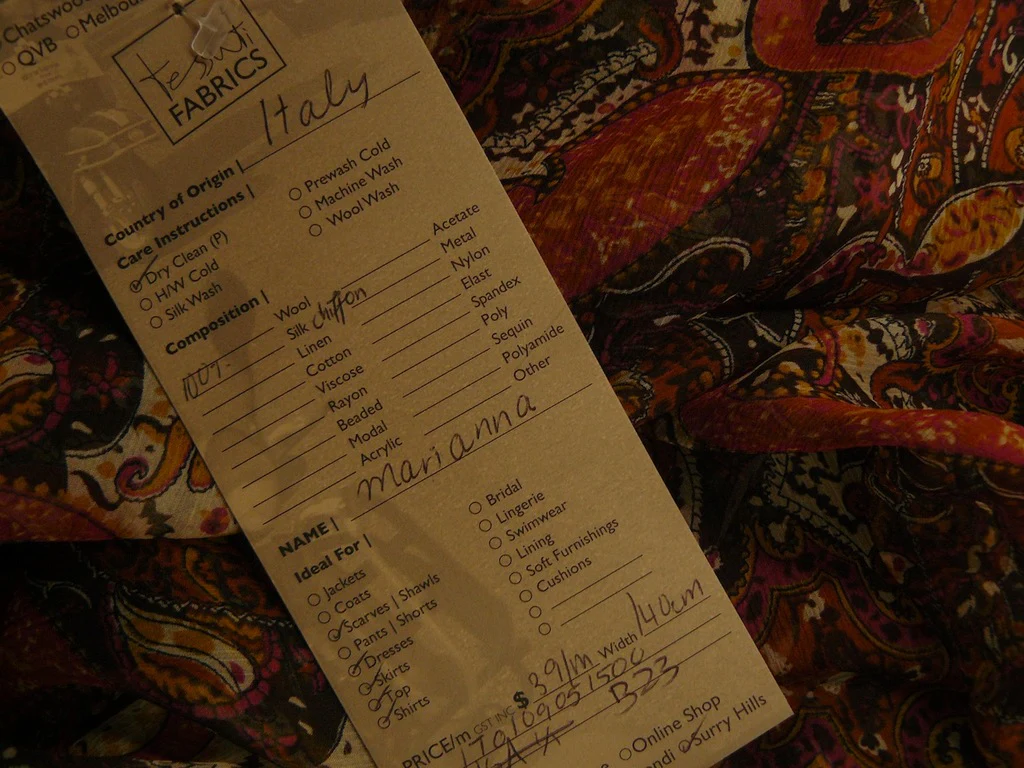 Chatswood
QVB Melbou
tessuti
FABRICS
Country of Origin | Italy
Care Instructions |
Dry Clean (P)
H/W Cold
Silk Wash
Prewash Cold
Machine Wash
Wool Wash
Composition |
Wool
100% Silk chiffon
Linen
Cotton
Viscose
Rayon
Beaded
Modal
Acrylic
Acetate
Metal
Nylon
Elast
Spandex
Poly
Sequin
Polyamide
Other
NAME | Marianna
Ideal For |
Jackets
Coats
Scarves | Shawls
Pants | Shorts
Dresses
Skirts
Top
Shirts
Bridal
Lingerie
Swimwear
Lining
Soft Furnishings
Cushions
PRICE/m GST INC $ 39/m Width 140cm
B23
Online Shop
ndi Surry Hills